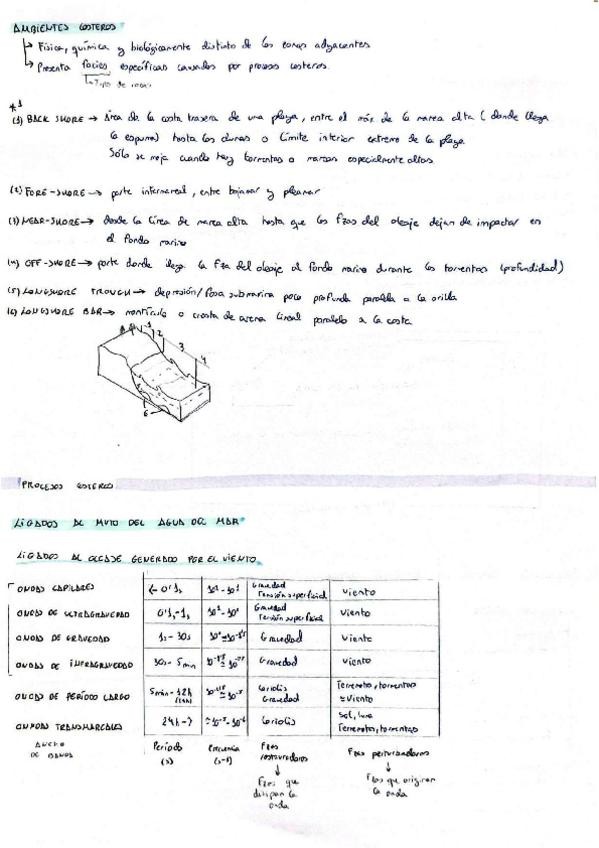 AMBIENTES COSTEROS
↳ Física, química y biológicamente distinto de las zonas adyacentes
↳ Presenta facies específicas causadas por procesos costeros.
↳ Tipo de rocas
(1) BACK SHORE → Área de la costa trasera de una playa, entre el máx de la marea alta (donde llega
la espuma) hasta las dunas o límite interior extremo de la playa
Sólo se moja cuando hay tormentas o mareas especialmente altas.
(2) FORE-SHORE → parte intermareal, entre bajamar y pleamar
(3) NEAR-SHORE → desde la línea de marea alta hasta que las fzas del oleaje dejan de impactar en
el fondo marino
(4) OFF-SHORE → parte donde llega la fza del oleaje al fondo marino durante las tormentas (profundidad)
(5) LONGSHORE TROUGH → depresión/fosa submarina poco profunda paralela a la orilla
(6) LONGSHORE BAR → montículo o cresta de arena lineal paralelo a la costa
1 2 3 4
6
PROCESOS COSTEROS
LIGADOS AL MVTO DEL AGUA DEL MAR
LIGADOS AL OLEAJE GENERADO POR EL VIENTO
ONDAS CAPILARES < 0'1s Gravedad Tensión superficial Viento
ONDAS DE ULTRAGRAVEDAD 0'1-1s Gravedad Tensión superficial Viento
ONDAS DE GRAVEDAD 1s-30s Gravedad Viento
ONDAS DE INFRAGRAVEDAD 30s-5min Gravedad Viento
ONDAS DE PERÍODO LARGO 5min-12h Coriolis Gravedad Terremoto, tormentas ≈ Viento
ONDAS TRANSMAREALES 24h-? Coriolis Sol, luna Terremotos, tormentas
ANCHO DE BANDA Período (s) Frecuencia (s-1) Fzas restauradoras Fzas perturbadoras
↓ ↓
Fzas que disipan la onda Fzas que originan la onda